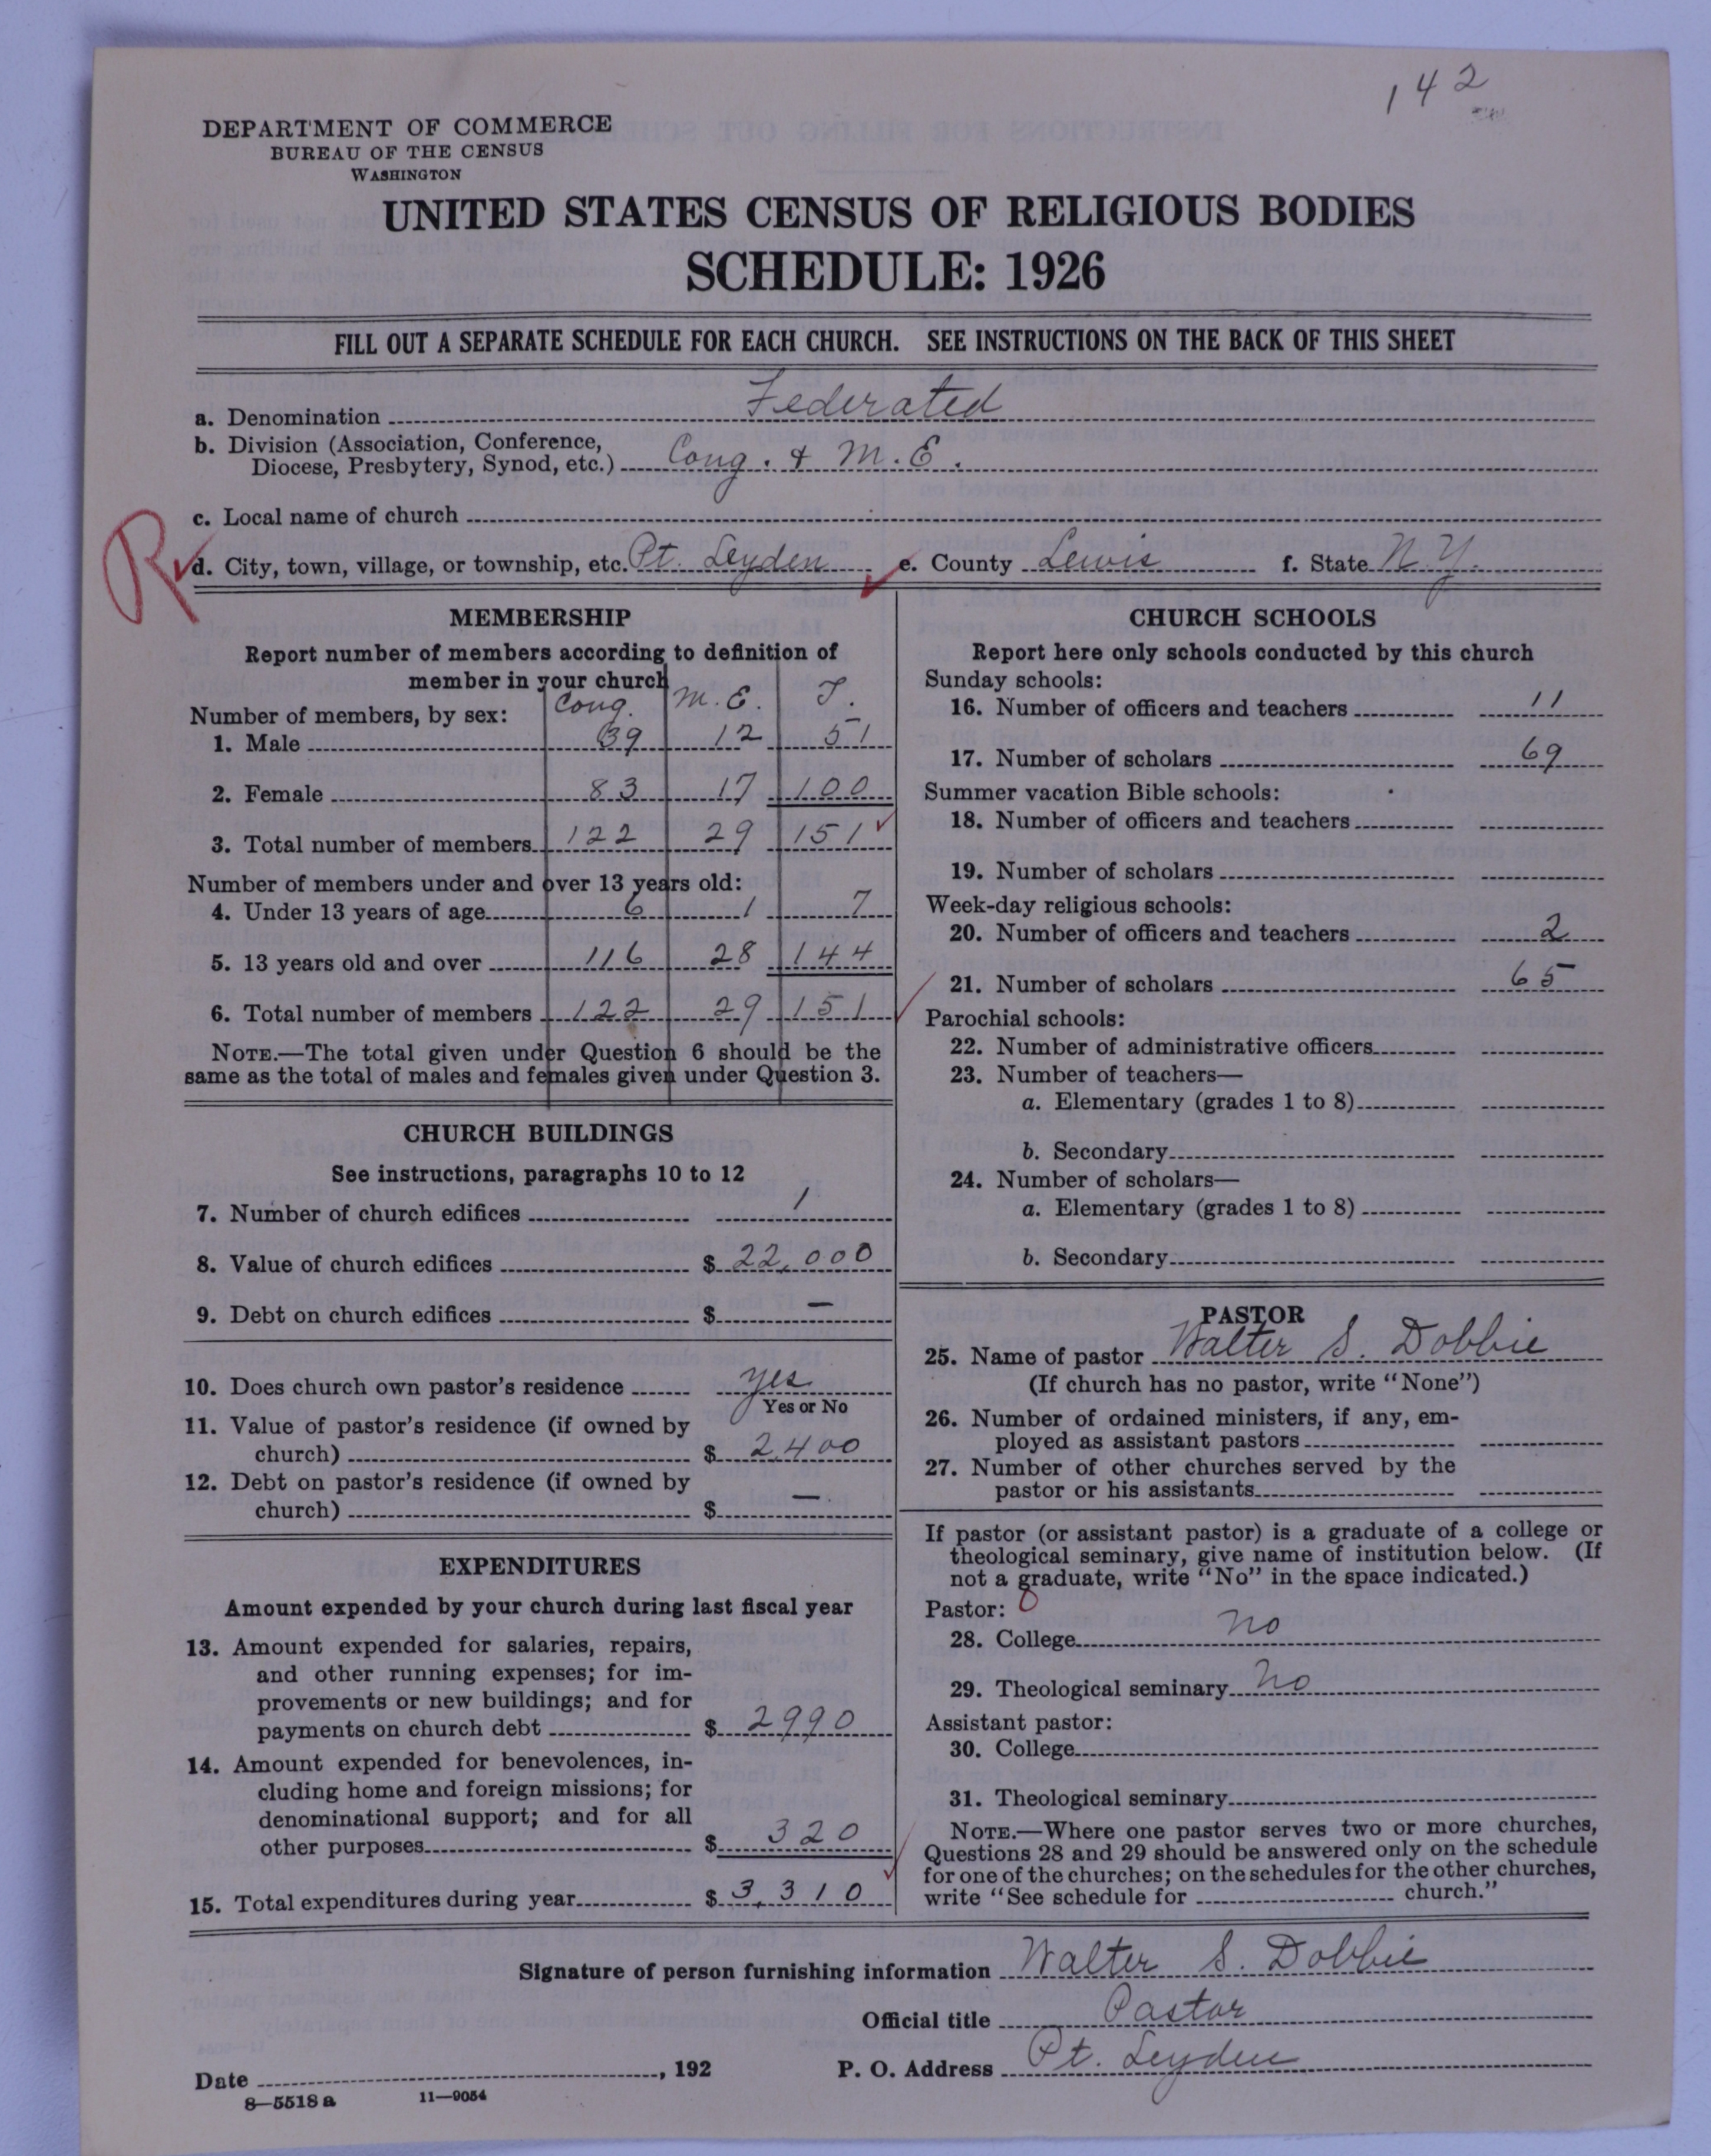 142
DEPARTMENT OF COMMERCE
BUREAU OF THE CENSUS
WASHINGTON
UNITED STATES CENSUS OF RELIGIOUS BODIES
SCHEDULE: 1926
FILL OUT A SEPARATE SCHEDULE FOR EACH CHURCH. SEE INSTRUCTIONS ON THE BACK OF THIS SHEET
a. Denomination Federated
b. Division (Association, Conference,
Diocese, Presbytery, Synod, etc.) Cong. & M.E.
c. Local name of church
R
d. City, town, village, or township, etc. Pt. Leyden e. County Lewis f. State N.Y.
MEMBERSHIP
Report number of members according to definition of
member in your church
Number of members, by sex: Cong. M.E. T.
1. Male 39 12 51
2. Female 83 17 100
3. Total number of members 122 29 151
Number of members under and over 13 years old:
4. Under 13 years of age 6 1 7
5. 13 years old and over 116 28 144
6. Total number of members 122 29 151
NOTE.—The total given under Question 6 should be the
same as the total of males and females given under Question 3.
CHURCH BUILDINGS
See instructions, paragraphs 10 to 12
7. Number of church edifices 1
8. Value of church edifices $ 22,000
9. Debt on church edifices $ —
10. Does church own pastor's residence yes
Yes or No
11. Value of pastor's residence (if owned by
church) $ 2,400
12. Debt on pastor's residence (if owned by
church) $ —
EXPENDITURES
Amount expended by your church during last fiscal year
13. Amount expended for salaries, repairs,
and other running expenses; for im-
provements or new buildings; and for
payments on church debt $ 2990
14. Amount expended for benevolences, in-
cluding home and foreign missions; for
denominational support; and for all
other purposes $ 320
15. Total expenditures during year $ 3,310
CHURCH SCHOOLS
Report here only schools conducted by this church
Sunday schools:
16. Number of officers and teachers 11
17. Number of scholars 69
Summer vacation Bible schools:
18. Number of officers and teachers
19. Number of scholars
Week-day religious schools:
20. Number of officers and teachers 2
21. Number of scholars 65
Parochial schools:
22. Number of administrative officers
23. Number of teachers—
a. Elementary (grades 1 to 8)
b. Secondary
24. Number of scholars—
a. Elementary (grades 1 to 8)
b. Secondary
PASTOR
25. Name of pastor Walter S. Dobbie
(If church has no pastor, write "None")
26. Number of ordained ministers, if any, em-
ployed as assistant pastors
27. Number of other churches served by the
pastor or his assistants
If pastor (or assistant pastor) is a graduate of a college or
theological seminary, give name of institution below. (If
not a graduate, write "No" in the space indicated.)
Pastor: 0
28. College no
29. Theological seminary no
Assistant pastor:
30. College
31. Theological seminary
NOTE.—Where one pastor serves two or more churches,
Questions 28 and 29 should be answered only on the schedule
for one of the churches; on the schedules for the other churches,
write "See schedule for church."
Signature of person furnishing information Walter S. Dobbie
Official title Pastor
Date , 192 P. O. Address Pt. Leyden
8—5518 a 11—9054